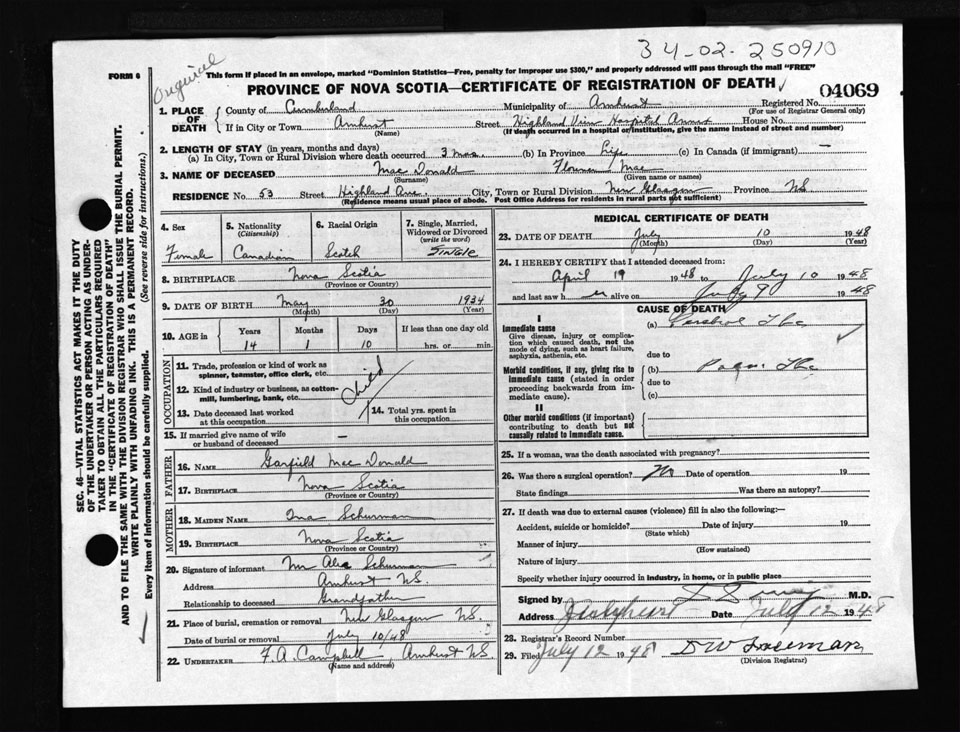 34-02-250910
Original
FORM 6
This form if placed in an envelope, marked "Dominion Statistics—Free, penalty for improper use $300," and properly addressed will pass through the mail "FREE"
PROVINCE OF NOVA SCOTIA—CERTIFICATE OF REGISTRATION OF DEATH
04069
1. PLACE OF DEATH
County of Cumberland Municipality of Amherst Registered No.
(For use of Registrar General only)
If in City or Town Amherst Street Highland View Hospital Annex House No.
(Name) (If death occurred in a hospital or institution, give the name instead of street and number)
2. LENGTH OF STAY (in years, months and days)
(a) In City, Town or Rural Division where death occurred 3 mos. (b) In Province Life (c) In Canada (if immigrant) —
3. NAME OF DECEASED Mac Donald Florence Mae
(Surname) (Given name or names)
RESIDENCE No. 53 Street Highland Ave. City, Town or Rural Division New Glasgow Province NS
(Residence means usual place of abode. Post Office Address for residents in rural parts not sufficient)
4. Sex
Female
5. Nationality (Citizenship)
Canadian
6. Racial Origin
Scotch
7. Single, Married, Widowed or Divorced (write the word)
SINGLE
8. BIRTHPLACE Nova Scotia
(Province or Country)
9. DATE OF BIRTH May 30 1934
(Month) (Day) (Year)
10. AGE in Years Months Days If less than one day old
14 1 10 hrs. or min.
OCCUPATION
11. Trade, profession or kind of work as spinner, teamster, office clerk, etc.
12. Kind of industry or business, as cotton-mill, lumbering, bank, etc.
Child
13. Date deceased last worked at this occupation
14. Total yrs. spent in this occupation
15. If married give name of wife or husband of deceased —
FATHER
16. NAME Garfield Mac Donald
17. BIRTHPLACE Nova Scotia
(Province or Country)
MOTHER
18. MAIDEN NAME Ina Schurman
19. BIRTHPLACE Nova Scotia
(Province or Country)
20. Signature of informant Mr Alec Schurman
Address Amherst NS.
Relationship to deceased Grandfather
21. Place of burial, cremation or removal New Glasgow NS.
Date of burial or removal July 10/48
22. UNDERTAKER F. A. Campbell, Amherst NS
(Name and address)
MEDICAL CERTIFICATE OF DEATH
23. DATE OF DEATH July 10 1948
(Month) (Day) (Year)
24. I HEREBY CERTIFY that I attended deceased from:
April 19 1948 to July 10 1948
and last saw h er alive on July 9 1948
CAUSE OF DEATH
I
Immediate cause
Give disease, injury or complication which caused death, not the mode of dying, such as heart failure, asphyxia, asthenia, etc.
(a) Tbc
due to
Morbid conditions, if any, giving rise to immediate cause (stated in order proceeding backwards from immediate cause).
(b) Tbc
due to
(c)
II
Other morbid conditions (if important) contributing to death but not causally related to immediate cause.
25. If a woman, was the death associated with pregnancy?
26. Was there a surgical operation? No Date of operation 19
State findings Was there an autopsy?
27. If death was due to external causes (violence) fill in also the following:—
Accident, suicide or homicide? Date of injury 19
(State which)
Manner of injury
(How sustained)
Nature of injury
Specify whether injury occurred in industry, in home, or in public place
Signed by M.D.
Address Date July 12 1948
28. Registrar's Record Number
29. Filed July 12 1948
(Division Registrar)
SEC. 46—VITAL STATISTICS ACT MAKES IT THE DUTY
OF THE UNDERTAKER OR PERSON ACTING AS UNDER-
TAKER TO OBTAIN ALL THE PARTICULARS REQUIRED
IN THE "CERTIFICATE OF REGISTRATION OF DEATH"
AND TO FILE THE SAME WITH THE DIVISION REGISTRAR WHO SHALL ISSUE THE BURIAL PERMIT.
WRITE PLAINLY WITH UNFADING INK. THIS IS A PERMANENT RECORD.
Every item of information should be carefully supplied. (See reverse side for instructions.)